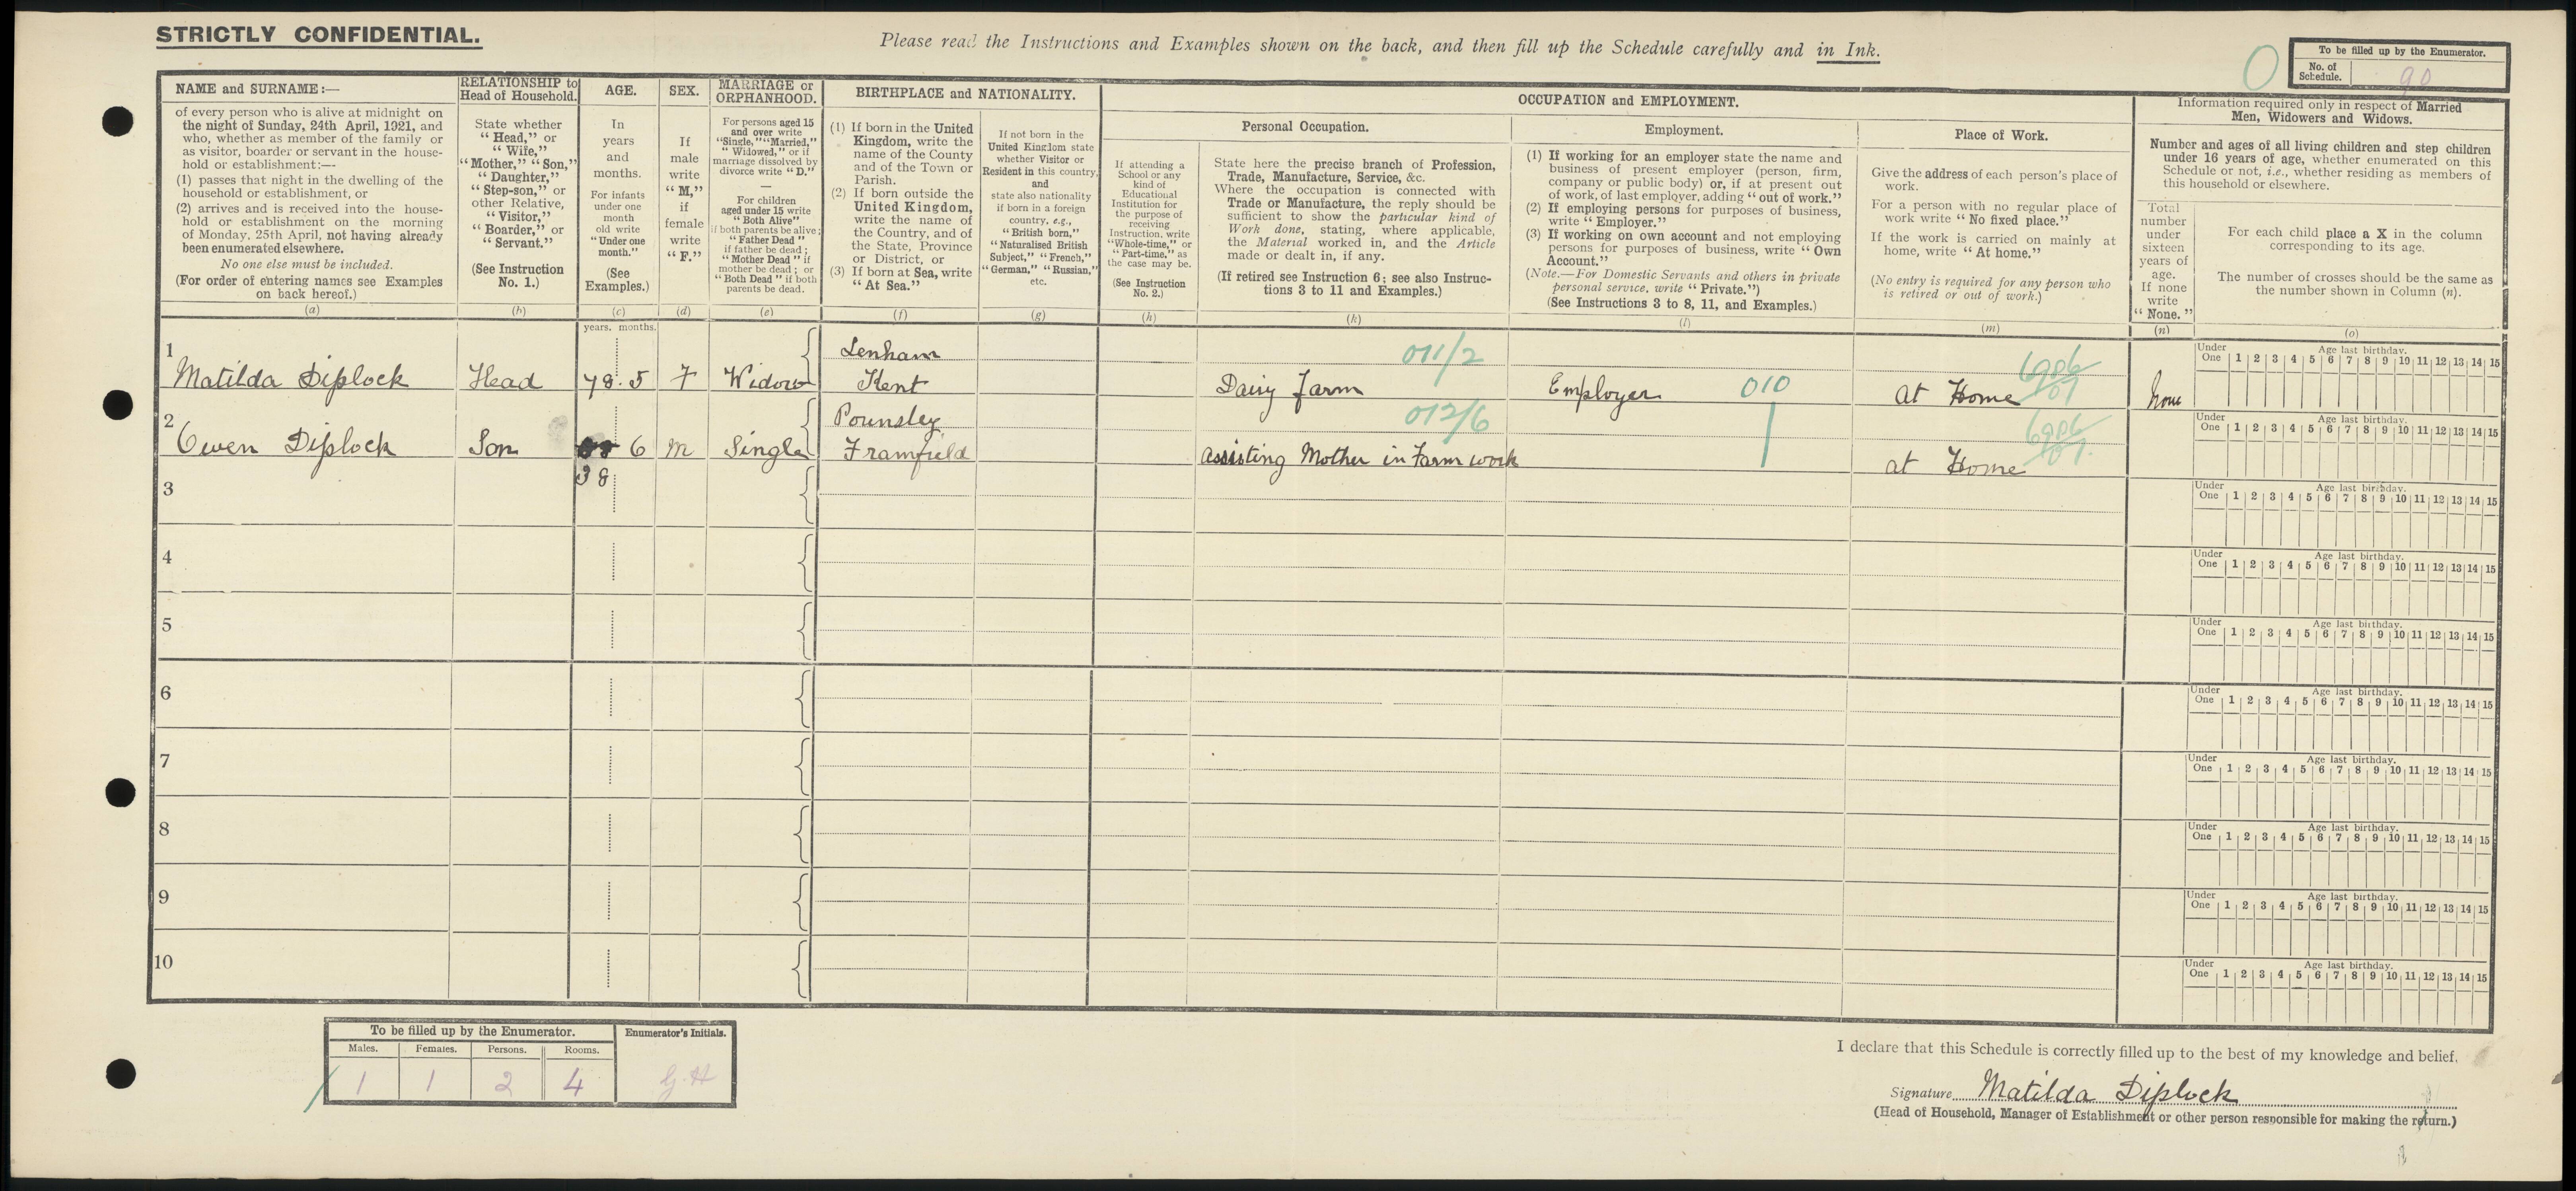 STRICTLY CONFIDENTIAL.
Please read the Instructions and Examples shown on the back, and then fill up the Schedule carefully and in Ink.
0
To be filled up by the Enumerator.
No. of Schedule. 90
NAME and SURNAME:—
of every person who is alive at midnight on
the night of Sunday, 24th April, 1921, and
who, whether as member of the family or
as visitor, boarder or servant in the house-
hold or establishment:—
(1) passes that night in the dwelling of the
household or establishment, or
(2) arrives and is received into the house-
hold or establishment on the morning
of Monday, 25th April, not having already
been enumerated elsewhere.
No one else must be included.
(For order of entering names see Examples
on back hereof.)
(a)
RELATIONSHIP to
Head of Household.
State whether
"Head," or
"Wife,"
"Mother," "Son,"
"Daughter,"
"Step-son," or
other Relative,
"Visitor,"
"Boarder," or
"Servant."
(See Instruction
No. 1.)
(b)
AGE.
In
years
and
months.
For infants
under one
month
old write
"Under one
month."
(See
Examples.)
(c)
SEX.
If
male
write
"M,"
if
female
write
"F."
(d)
MARRIAGE or
ORPHANHOOD.
For persons aged 15
and over write
"Single," "Married,"
"Widowed," or if
marriage dissolved by
divorce write "D."
—
For children
aged under 15 write
"Both Alive"
if both parents be alive;
"Father Dead"
if father be dead;
"Mother Dead" if
mother be dead; or
"Both Dead" if both
parents be dead.
(e)
BIRTHPLACE and NATIONALITY.
(1) If born in the United
Kingdom, write the
name of the County
and of the Town or
Parish.
(2) If born outside the
United Kingdom,
write the name of
the Country, and of
the State, Province
or District, or
(3) If born at Sea, write
"At Sea."
(f)
If not born in the
United Kingdom state
whether Visitor or
Resident in this country,
and
state also nationality
if born in a foreign
country, e.g.,
"British born,"
"Naturalised British
Subject," "French,"
"German," "Russian,"
etc.
(g)
OCCUPATION and EMPLOYMENT.
If attending a
School or any
kind of
Educational
Institution for
the purpose of
receiving
Instruction, write
"Whole-time," or
"Part-time," as
the case may be.
(See Instruction
No. 2.)
(h)
Personal Occupation.
State here the precise branch of Profession,
Trade, Manufacture, Service, &c.
Where the occupation is connected with
Trade or Manufacture, the reply should be
sufficient to show the particular kind of
Work done, stating, where applicable,
the Material worked in, and the Article
made or dealt in, if any.
(If retired see Instruction 6; see also Instruc-
tions 3 to 11 and Examples.)
(k)
Employment.
(1) If working for an employer state the name and
business of present employer (person, firm,
company or public body) or, if at present out
of work, of last employer, adding "out of work."
(2) If employing persons for purposes of business,
write "Employer."
(3) If working on own account and not employing
persons for purposes of business, write "Own
Account."
(Note.—For Domestic Servants and others in private
personal service, write "Private.")
(See Instructions 3 to 8, 11, and Examples.)
(l)
Place of Work.
Give the address of each person's place of
work.
For a person with no regular place of
work write "No fixed place."
If the work is carried on mainly at
home, write "At home."
(No entry is required for any person who
is retired or out of work.)
(m)
Information required only in respect of Married
Men, Widowers and Widows.
Number and ages of all living children and step children
under 16 years of age, whether enumerated on this
Schedule or not, i.e., whether residing as members of
this household or elsewhere.
Total
number
under
sixteen
years of
age.
If none
write
"None."
(n)
For each child place a X in the column
corresponding to its age.
The number of crosses should be the same as
the number shown in Column (n).
(o)
years. months.
1 Matilda Diplock Head 78.5 F Widow Lenham Kent Dairy farm 011/2 Employer 010 At Home None
Under One Age last birthday. 1 2 3 4 5 6 7 8 9 10 11 12 13 14 15
2 Owen Diplock Son 38 6 M Single Pounsley Framfield Assisting Mother in Farm work 012/6 at Home
Under One Age last birthday. 1 2 3 4 5 6 7 8 9 10 11 12 13 14 15
3
Under One Age last birthday. 1 2 3 4 5 6 7 8 9 10 11 12 13 14 15
4
Under One Age last birthday. 1 2 3 4 5 6 7 8 9 10 11 12 13 14 15
5
Under One Age last birthday. 1 2 3 4 5 6 7 8 9 10 11 12 13 14 15
6
Under One Age last birthday. 1 2 3 4 5 6 7 8 9 10 11 12 13 14 15
7
Under One Age last birthday. 1 2 3 4 5 6 7 8 9 10 11 12 13 14 15
8
Under One Age last birthday. 1 2 3 4 5 6 7 8 9 10 11 12 13 14 15
9
Under One Age last birthday. 1 2 3 4 5 6 7 8 9 10 11 12 13 14 15
10
Under One Age last birthday. 1 2 3 4 5 6 7 8 9 10 11 12 13 14 15
To be filled up by the Enumerator. Enumerator's Initials.
Males. Females. Persons. Rooms.
1 1 2 4 G.H
I declare that this Schedule is correctly filled up to the best of my knowledge and belief.
Signature Matilda Diplock
(Head of Household, Manager of Establishment or other person responsible for making the return.)